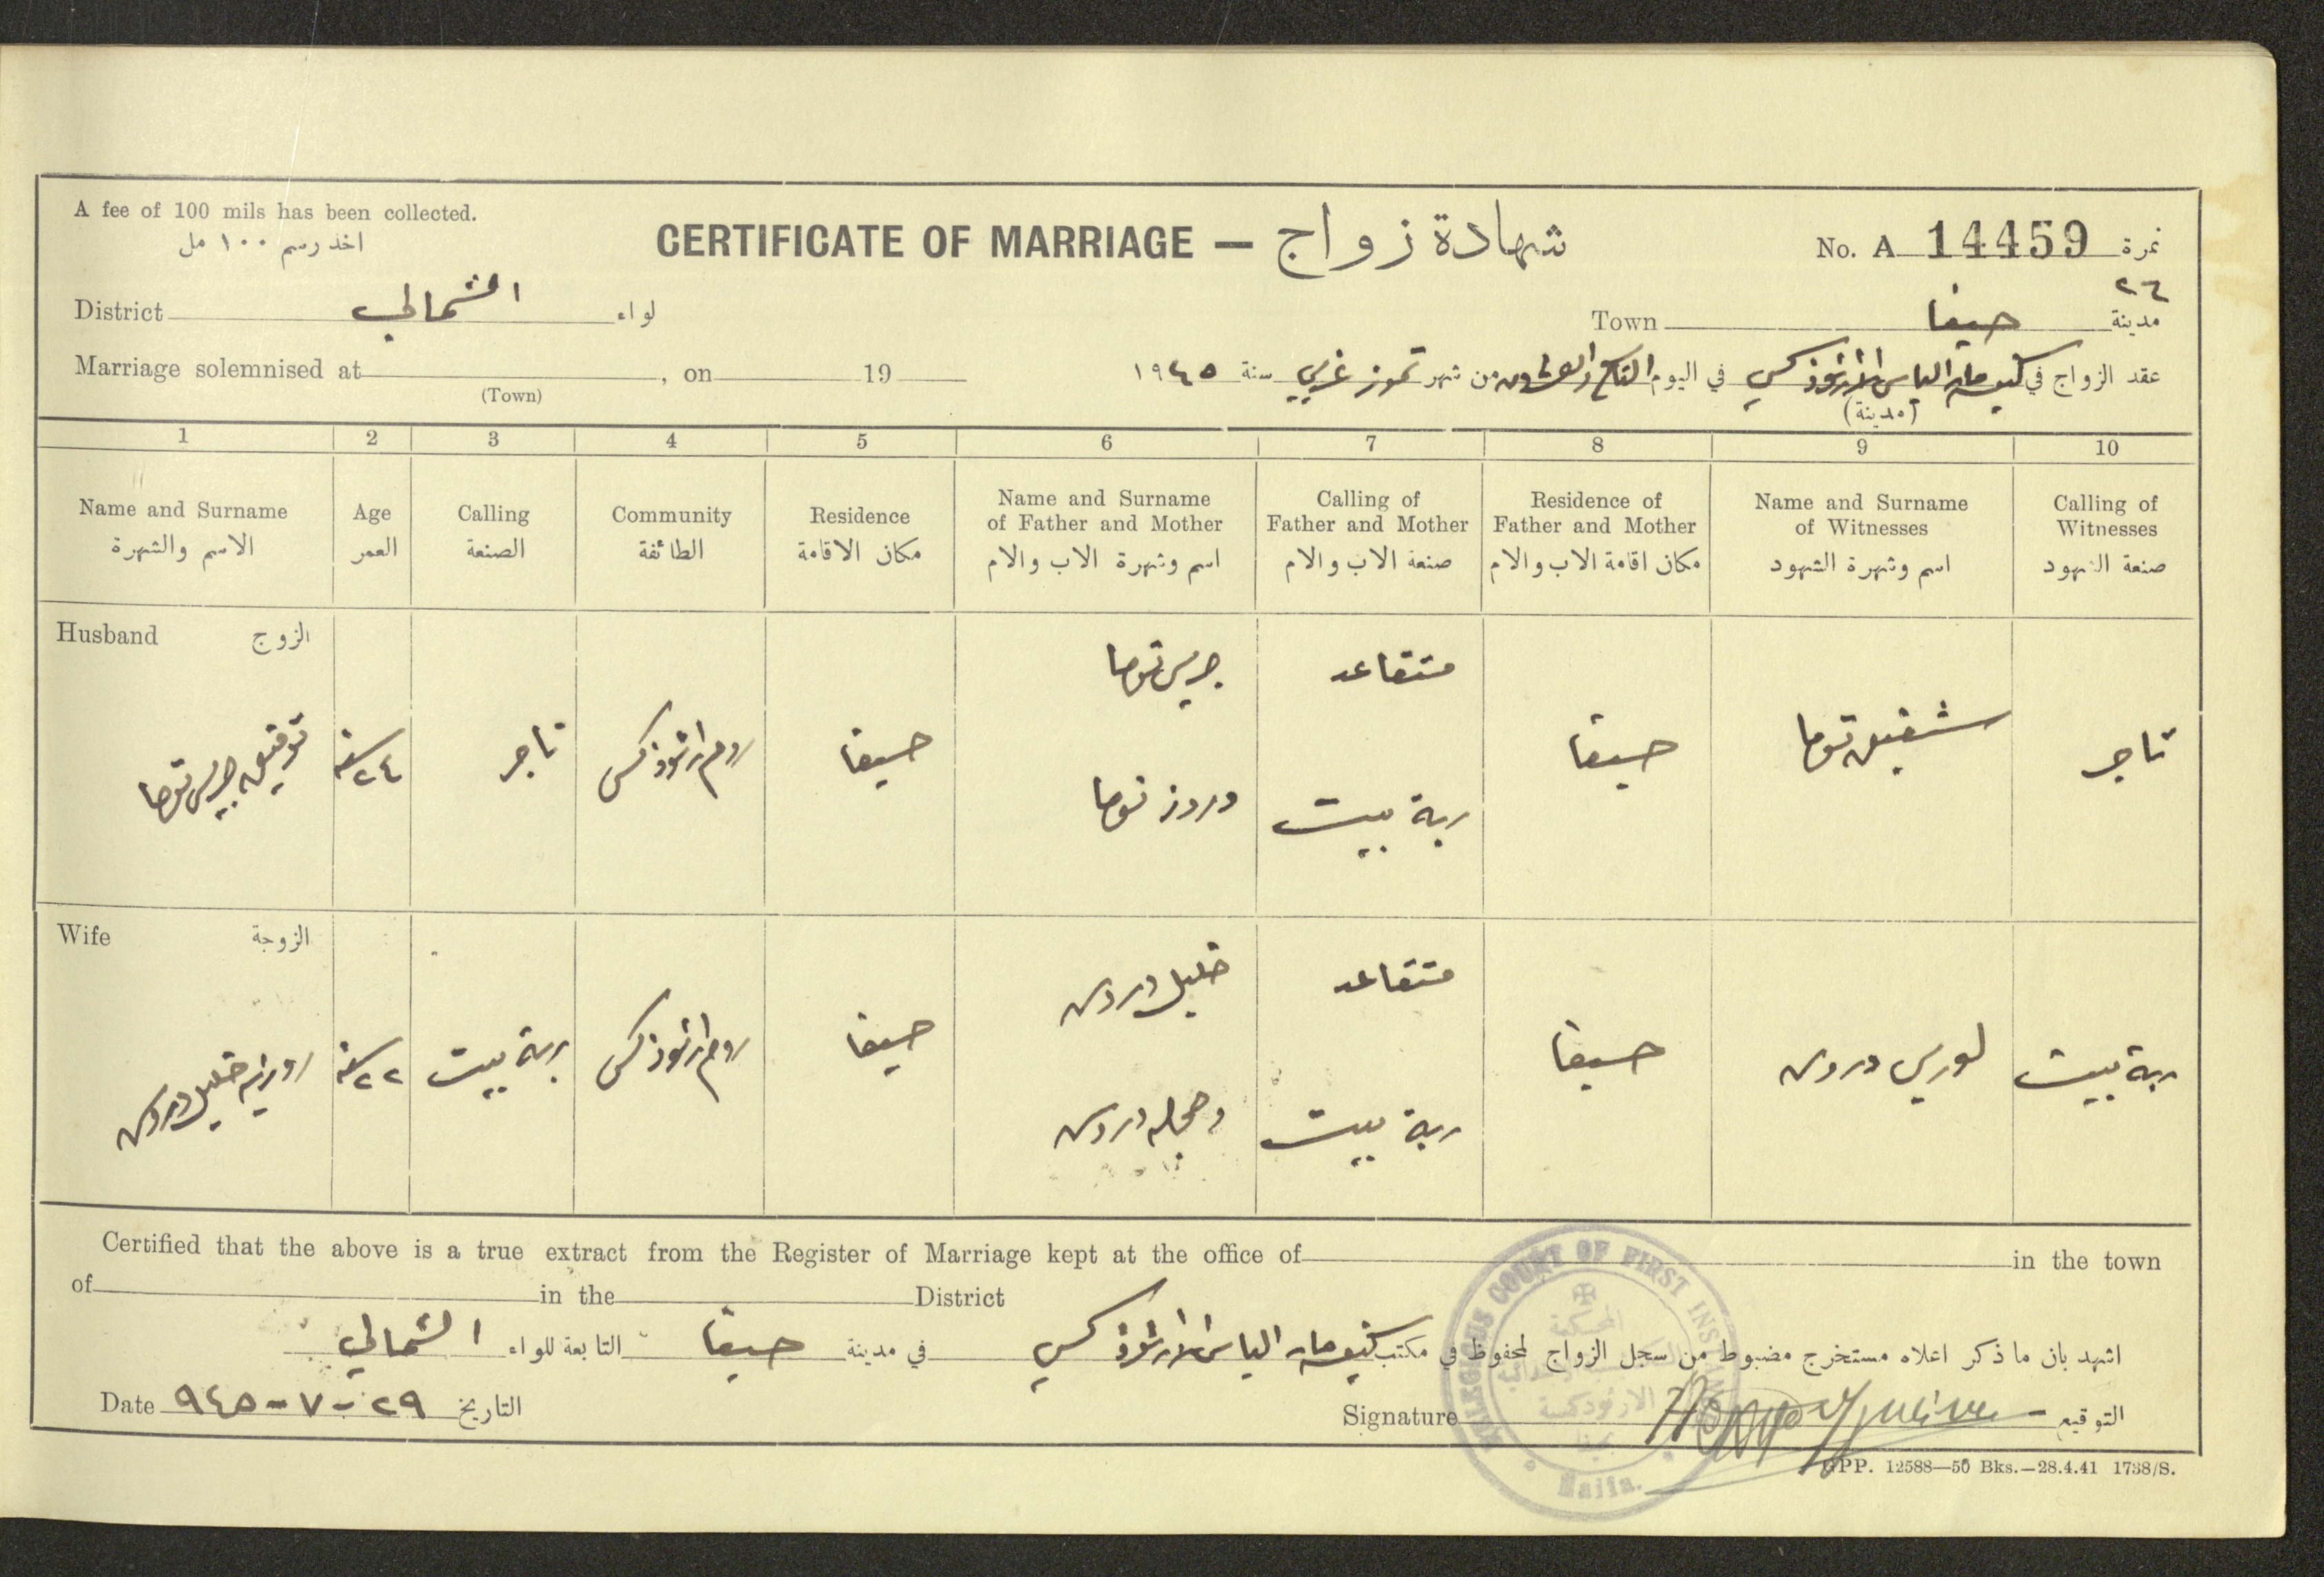 A fee of 100 mils has been collected.
اخذ رسم ١٠٠ مل
CERTIFICATE OF MARRIAGE — شهادة زواج
No. A 14459 نمرة
٢٤
District الشمالي لواء
Town حيفا مدينة
Marriage solemnised at , on 19
(Town)
عقد الزواج في كنيسة مار الياس الارثوذكسي في اليوم التاسع والعشرون من شهر تموز غربي سنة ١٩٤٥
(مدينة)
1 2 3 4 5 6 7 8 9 10
Name and Surname Age Calling Community Residence Name and Surname of Father and Mother Calling of Father and Mother Residence of Father and Mother Name and Surname of Witnesses Calling of Witnesses
الاسم والشهرة العمر الصنعة الطائفة مكان الاقامة اسم وشهرة الاب والام صنعة الاب والام مكان اقامة الاب والام اسم وشهرة الشهود صنعة الشهود
Husband الزوج
توفيق جريس توما
٢٤ سنة
تاجر
روم ارثوذكس
حيفا
جريس توما
وروز توما
متقاعد
ربة بيت
حيفا
شفيق توما
تاجر
Wife الزوجة
خليل دروس
٢٢ سنة
ربة بيت
روم ارثوذكس
حيفا
خليل دروس
دروس
متقاعد
ربة بيت
حيفا
لوريس دروس
ربة بيت
Certified that the above is a true extract from the Register of Marriage kept at the office of in the town
of in the District
اشهد بان ما ذكر اعلاه مستخرج مضبوط من سجل الزواج المحفوظ في مكتب كنيسة مار الياس الارثوذكسي في مدينة حيفا التابعة للواء الشمالي
Date ٢٩-٧-٩٤٥ التاريخ
Signature التوقيع
RELIGIOUS COURT OF FIRST INSTANCE
المحكمة
الارثوذكسية
Haifa.
GPP. 12588—50 Bks.—28.4.41 1738/S.